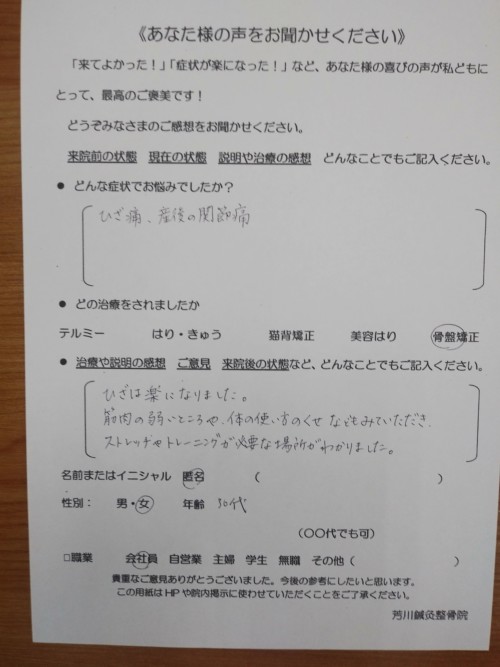 《あなた様の声をお聞かせください》
「来てよかった！」「症状が楽になった！」など、あなた様の喜びの声が私どもに
とって、最高のご褒美です！
どうぞみなさまのご感想をお聞かせください。
来院前の状態 現在の状態 説明や治療の感想 どんなことでもご記入ください。
● どんな症状でお悩みでしたか？
ひざ痛、産後の関節痛
● どの治療をされましたか
テルミー はり・きゅう 猫背矯正 美容はり 骨盤矯正
● 治療や説明の感想 ご意見 来院後の状態など、どんなことでもご記入ください。
ひざは楽になりました。
筋肉の弱いところや、体の使い方のくせなどもみていただき、
ストレッチやトレーニングが必要な場所がわかりました。
名前またはイニシャル 匿名 （ ）
性別： 男・女 年齢 30代
（〇〇代でも可）
□職業 会社員 自営業 主婦 学生 無職 その他（ ）
貴重なご意見ありがとうございました。今後の参考にしたいと思います。
この用紙はHPや院内掲示に使わせていただくことをご了承ください。
芳川鍼灸整骨院